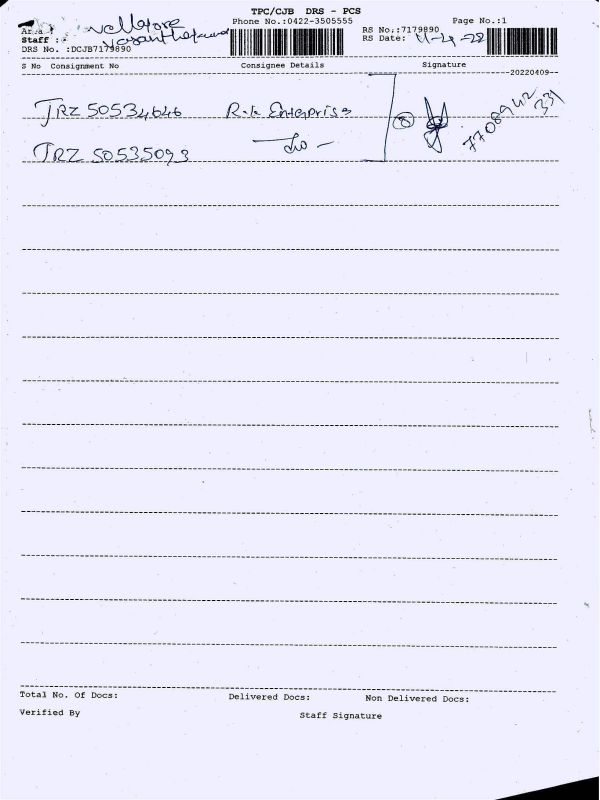 TPC/CJB DRS - PCS
Phone No.:0422-3505555 Page No.:1
Area :
Staff :
DRS No. :DCJB7179890
RS No.:7179890
RS Date: 11-4-22
S No Consignment No Consignee Details Signature
20220409
JRZ 50534646 R.k Enterprise
JRZ 50535093 Do -
7708942
331
Total No. Of Docs: Delivered Docs: Non Delivered Docs:
Verified By Staff Signature